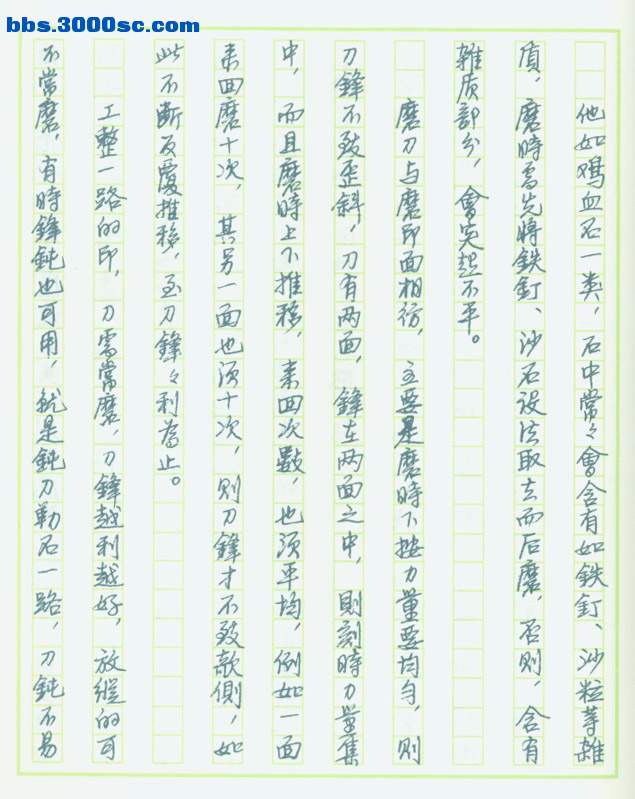 bbs.3000sc.com
他如鸡血石一类，石中常々會含有如鉄釘、沙粒等雜
質，磨時需先將鉄釘、沙石设法取去而后磨，否则，含有
雜质部分，會突起不平。
磨刀与磨印面相彷，主要是磨時下按力量要均匀，则
刀鋒不致歪斜，刀有两面，鋒在两面之中，則刻時力量集
中，而且磨時上下推移，来回次數，也须平均，例如一面
来回磨十次，其另一面也须十次，则刀鋒才不致欹側，如
此不断反覆推移，至刀鋒々利為止。
工整一路的印，刀需常磨，刀鋒越利越好，放縱的可
不常磨，有時鋒鈍也可用，就是鈍刀勒石一路，刀鈍不易